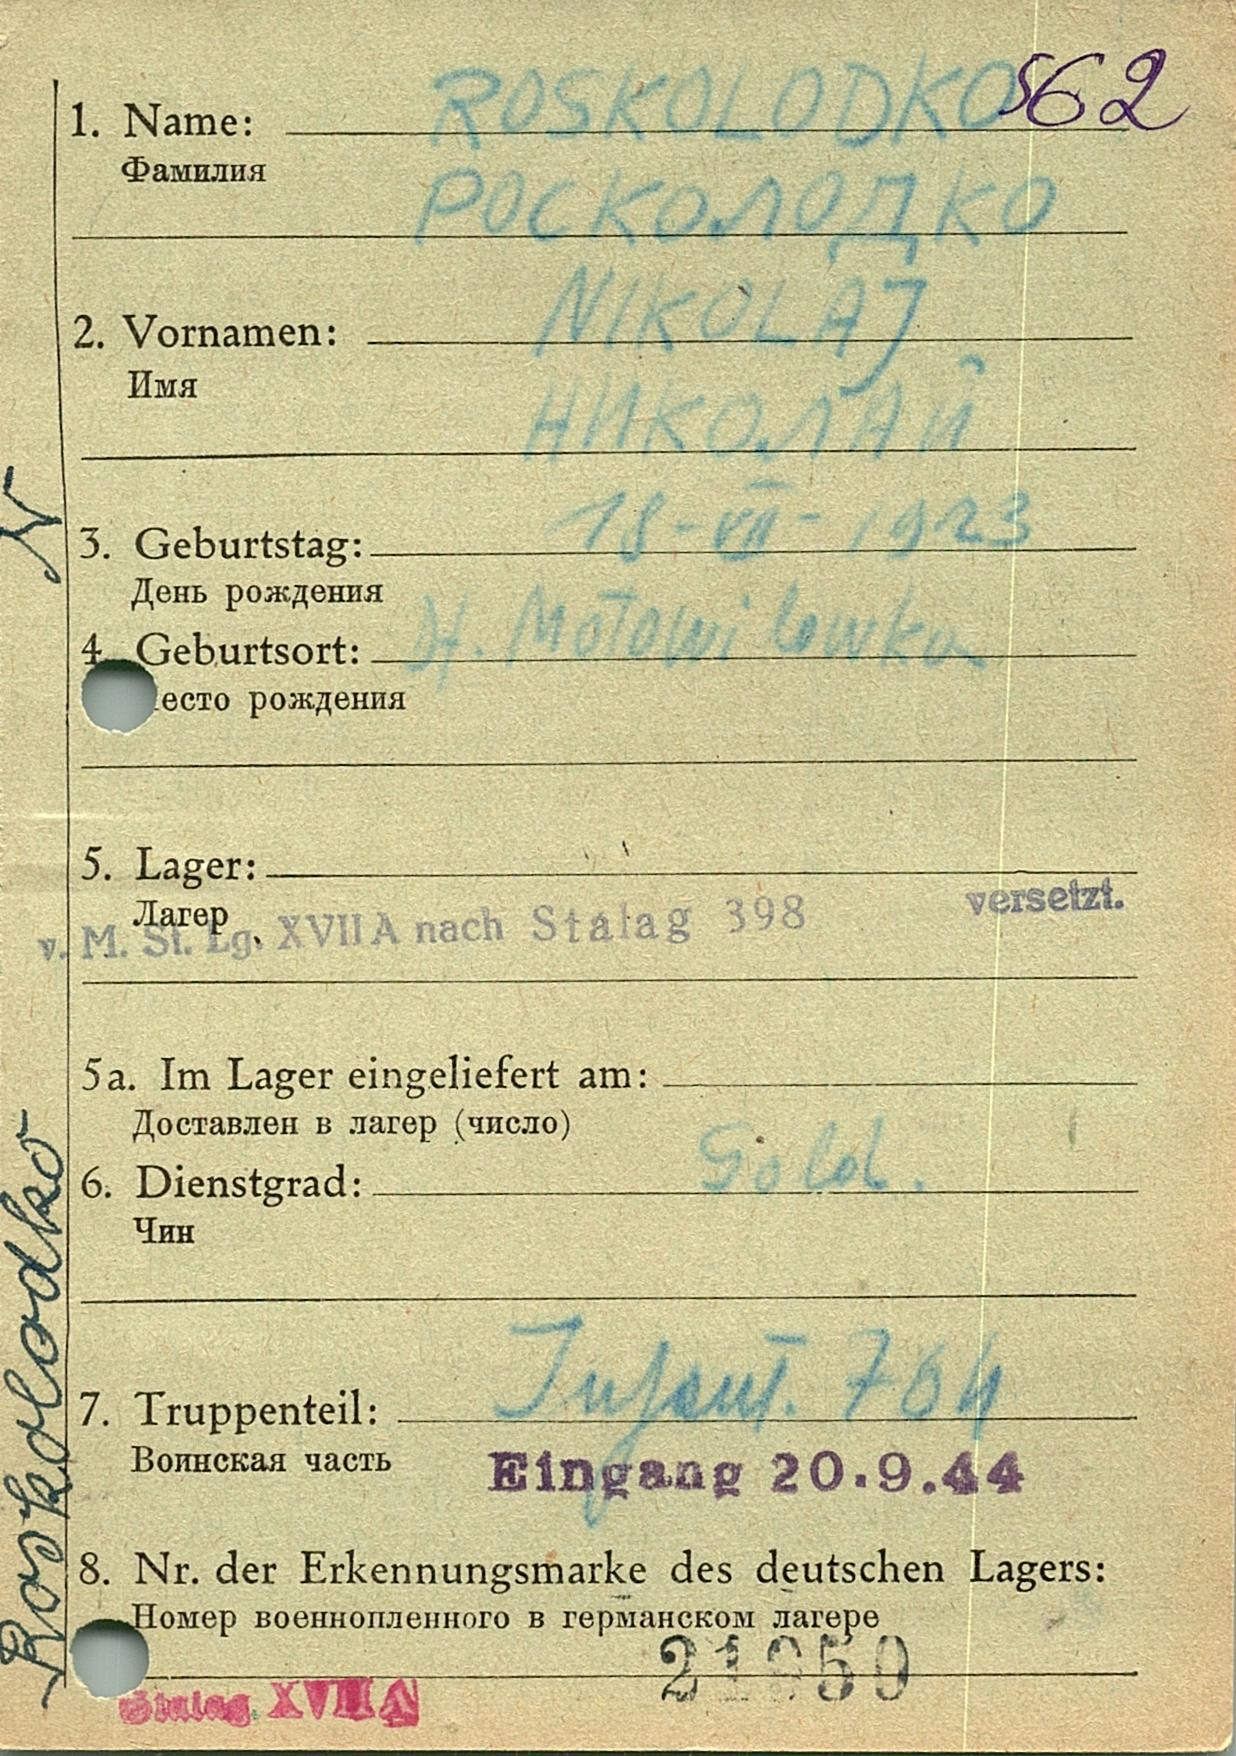 562
1. Name: ROSKOLODKO
Фамилия РОСКОЛОДКО
2. Vornamen: NIKOLAJ
Имя НИКОЛАЙ
3. Geburtstag: 18-VII-1923
День рождения
4. Geburtsort: H. Motowilowka
есто рождения
5. Lager:
Лагер
v. M. St. Lg. XVII A nach Stalag 398 versetzt.
5a. Im Lager eingeliefert am:
Доставлен в лагер (число)
6. Dienstgrad: Sold.
Чин
7. Truppenteil: Infant. 764
Воинская часть Eingang 20.9.44
8. Nr. der Erkennungsmarke des deutschen Lagers:
Номер военнопленного в германском лагере
Stalag XVII A
Roskolodko N